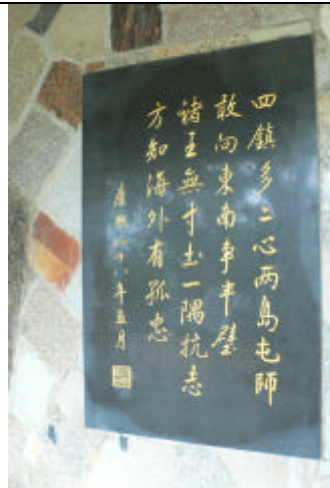 四鎮多二心兩島屯師
敢向東南爭半壁
諸王無寸土一隅抗志
方知海外有孤忠
康熙三十八年五月